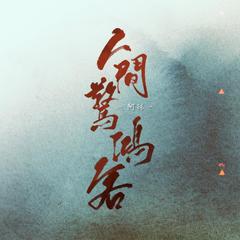 人間驚鴻客
阿禄